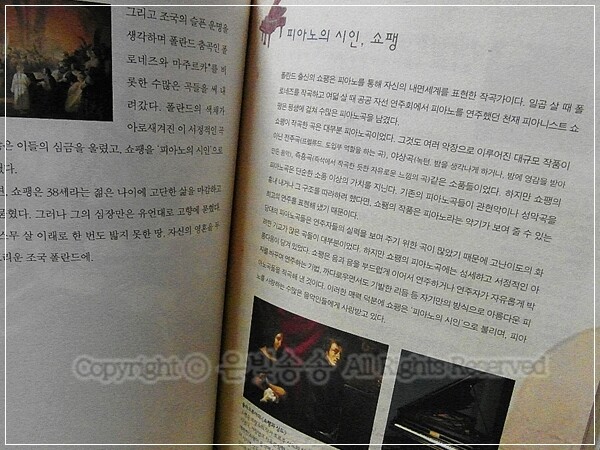 그리고 조국의 슬픈 운명을
생각하며 폴란드 출국인 폴
로네즈와 마주르카*를 비
롯한 수많은 곡들을 써 내
려갔다. 폴란드의 색채가
아로새겨진 이 서정적인 곡
은 이들의 심금을 울렸고, 쇼팽을 '피아노의 시인'으로
쇼팽은 38세라는 젊은 나이에 고단한 삶을 마감하고
그러나 그의 심장만은 유언대로 고향에 묻혔다.
스무 살 이래로 한 번도 밟지 못한 땅, 자신의 영혼을
조국 폴란드에.
피아노의 시인, 쇼팽
폴란드 출신의 쇼팽은 피아노를 통해 자신의 내면세계를 표현한 작곡가이다. 일곱 살 때 폴
로네즈를 작곡하고 여덟 살 때 공공 자선 연주회에서 피아노를 연주했던 천재 피아니스트 쇼
팽은 평생에 걸쳐 수많은 피아노곡을 남겼다.
쇼팽이 작곡한 곡은 대부분 피아노곡이었다. 그것도 여러 악장으로 이루어진 대규모 작품이
아닌 전주곡(프렐류드, 도입부 역할을 하는 곡), 야상곡(녹턴, 밤을 생각나게 하거나, 밤에 영감을 받아
만든 음악), 즉흥곡(즉석에서 작곡한 듯한 자유로운 느낌의 곡)같은 소품들이었다. 하지만 쇼팽의
피아노곡은 단순한 소품 이상의 가치를 지닌다. 기존의 피아노곡들이 관현악이나 성악곡을
흉내 내거나 그 구조를 따라하려 했다면, 쇼팽의 작품은 피아노라는 악기가 보여 줄 수 있는
최고의 연주를 표현해 냈기 때문이다.
당대의 피아노곡들은 연주자들의 실력을 보여 주기 위한 곡이 많았기 때문에 고난이도의 화
려한 기교가 많은 곡들이 대부분이었다. 하지만 쇼팽의 피아노곡에는 섬세하고 서정적인 아
름다움이 담겨 있었다. 쇼팽은 음과 음을 부드럽게 이어서 연주하거나 연주자가 자유롭게 박
자를 바꾸어 연주하는 기법, 까다로우면서도 기발한 리듬 등 자기만의 방식으로 아름다운 피
아노곡들을 작곡해 낸 것이다. 이러한 매력 덕분에 쇼팽은 '피아노의 시인'으로 불리며, 피아
노를 사랑하는 수많은 음악인들에게 사랑받고 있다.
Copyright © 은빛송송 All Rights Reserved